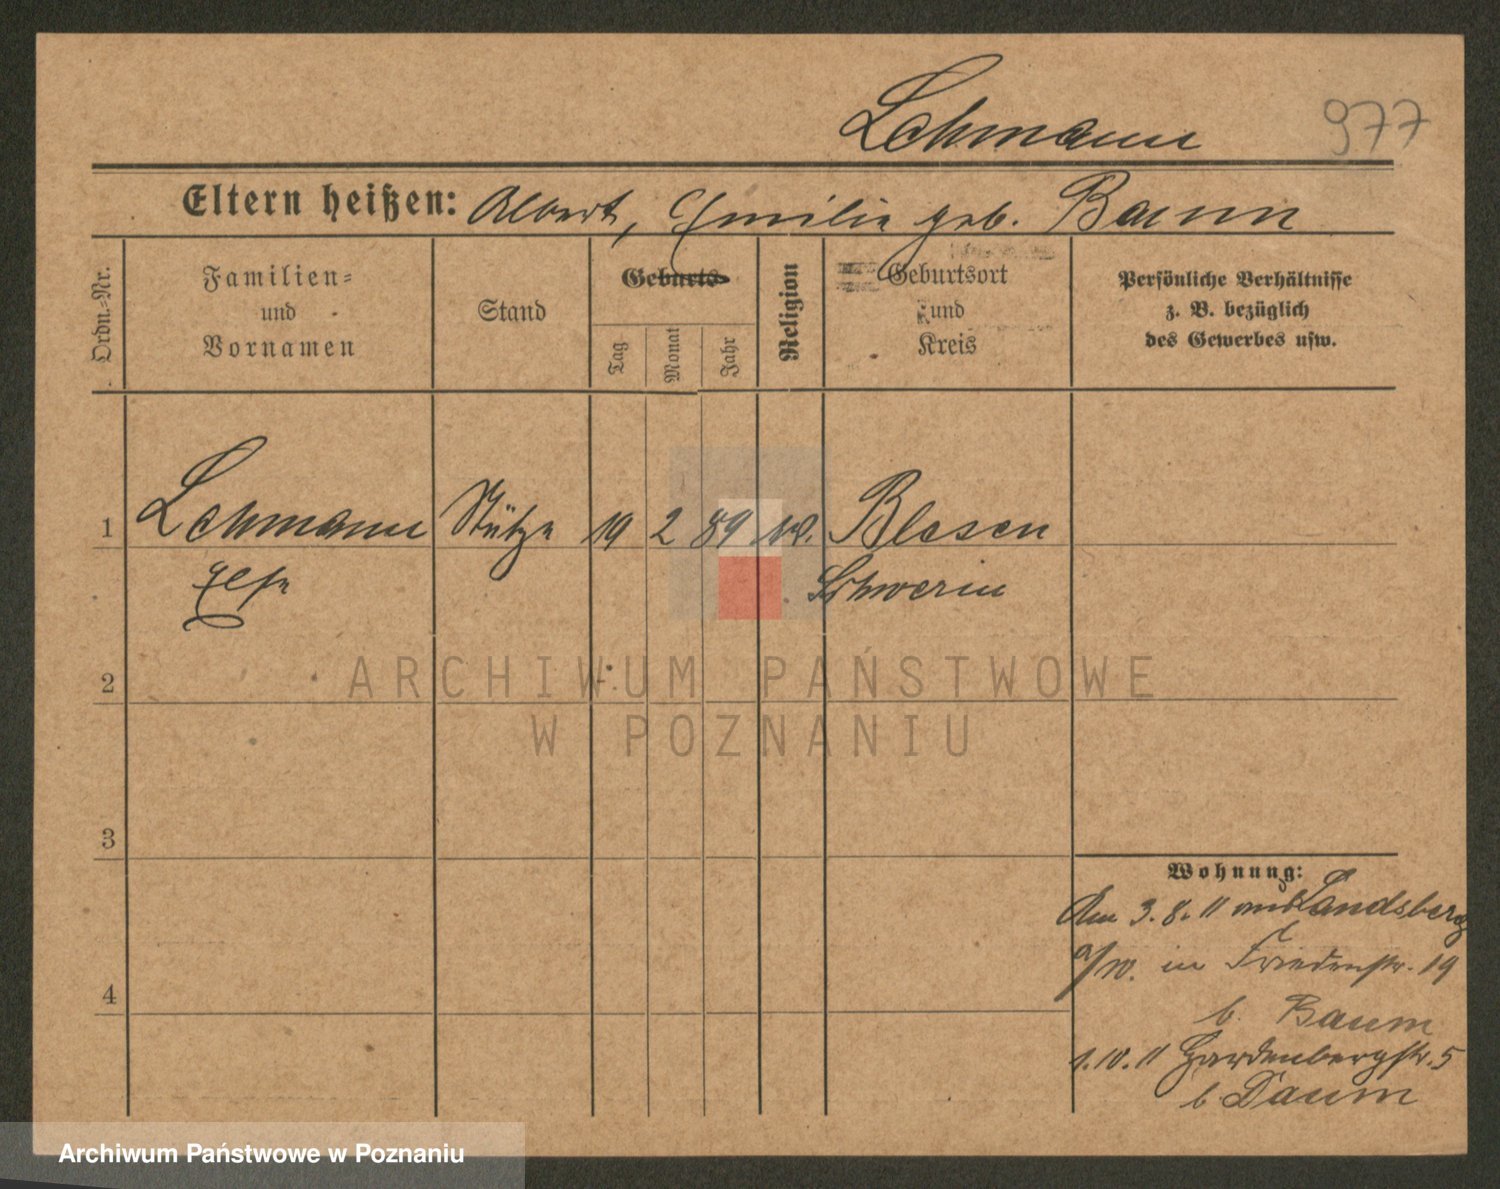 Lehmann 977
Eltern heißen: Albert, Emilie geb. Baum
Ordn.-Nr.
Familien-
und
Vornamen
Stand
Geburts-
Tag
Monat
Jahr
Religion
Geburtsort
und
Kreis
Persönliche Verhältnisse
z. B. bezüglich
des Gewerbes usw.
1 Lehmann Stütze 19 2 89 Blesen
Else Schwerin
2
3
4
Wohnung:
Am 3.8.11 aus Landsberg
a/W. in Friedenstr. 19
b. Baum
1.10.11 Hardenbergstr. 5
b. Daum
ARCHIWUM PAŃSTWOWE
W POZNANIU
Archiwum Państwowe w Poznaniu